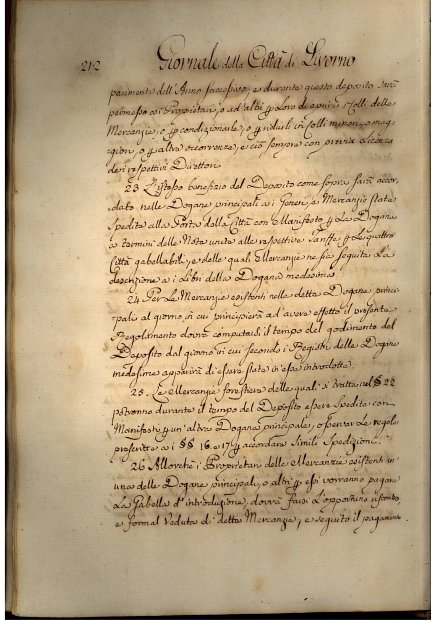 212 Giornale della Città di Livorno
pagamento dell'Anno successivo, e durante questo deposito sarà
permesso a i Proprietarj, o ad altri p loro di aprire i Colli delle
Mercanzie, o p condizionarle, o p ridurli in Colli minori, o mag-
giori, o p altre occorrenze, e ciò sempre con previa licenza
dei respettivi Direttori.
23 L'istesso benefizio del Deposito come sopra sarà accor-
dato nelle Dogane principali a i Generi, e Mercanzie state
spedite alla Porta della Città con Manifesto p Le Dogane
a termini delle Note unite alle respettive Tariffe p Le quattro
Città gabellabili, e delle quali Mercanzie ne sia seguita La
descrizione a i Libri della Dogana medesima.
24. Per Le Mercanzie esistenti nelle dette Dogane princi-
pali al giorno in cui principierà ad avere effetto il presente
Regolamento dovrà computarsi il tempo del godimento del
Deposito dal giorno in cui secondo i Registri delle Dogane
medesime apparirà di essere state in esse introdotte.
25. Le Mercanzie forestiere delle quali si tratta nel § 22
potranno durante il tempo del Deposito essere spedite con
Manifesti p un'altra Dogana principale, osservate Le regole
prescritte a i §§ 16. e 17 p accordare simili Spedizioni.
26 Allorchè i Proprietarj delle Mercanzie esistenti in
una delle Dogane principali, o altri p essi vorranno pagare
La Gabella d'introduzione, dovrà farsi l'opportuno riscontro
e formal Veduta di dette Mercanzie, e seguito il pagamen-